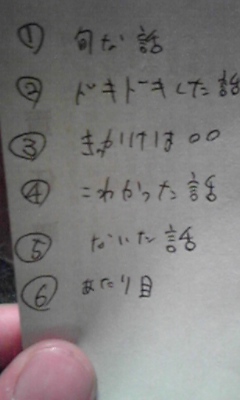 ① 旬な話
② ドキドキした話
③ きっかけは○○
④ こわかった話
⑤ ないた話
⑥ あたり目